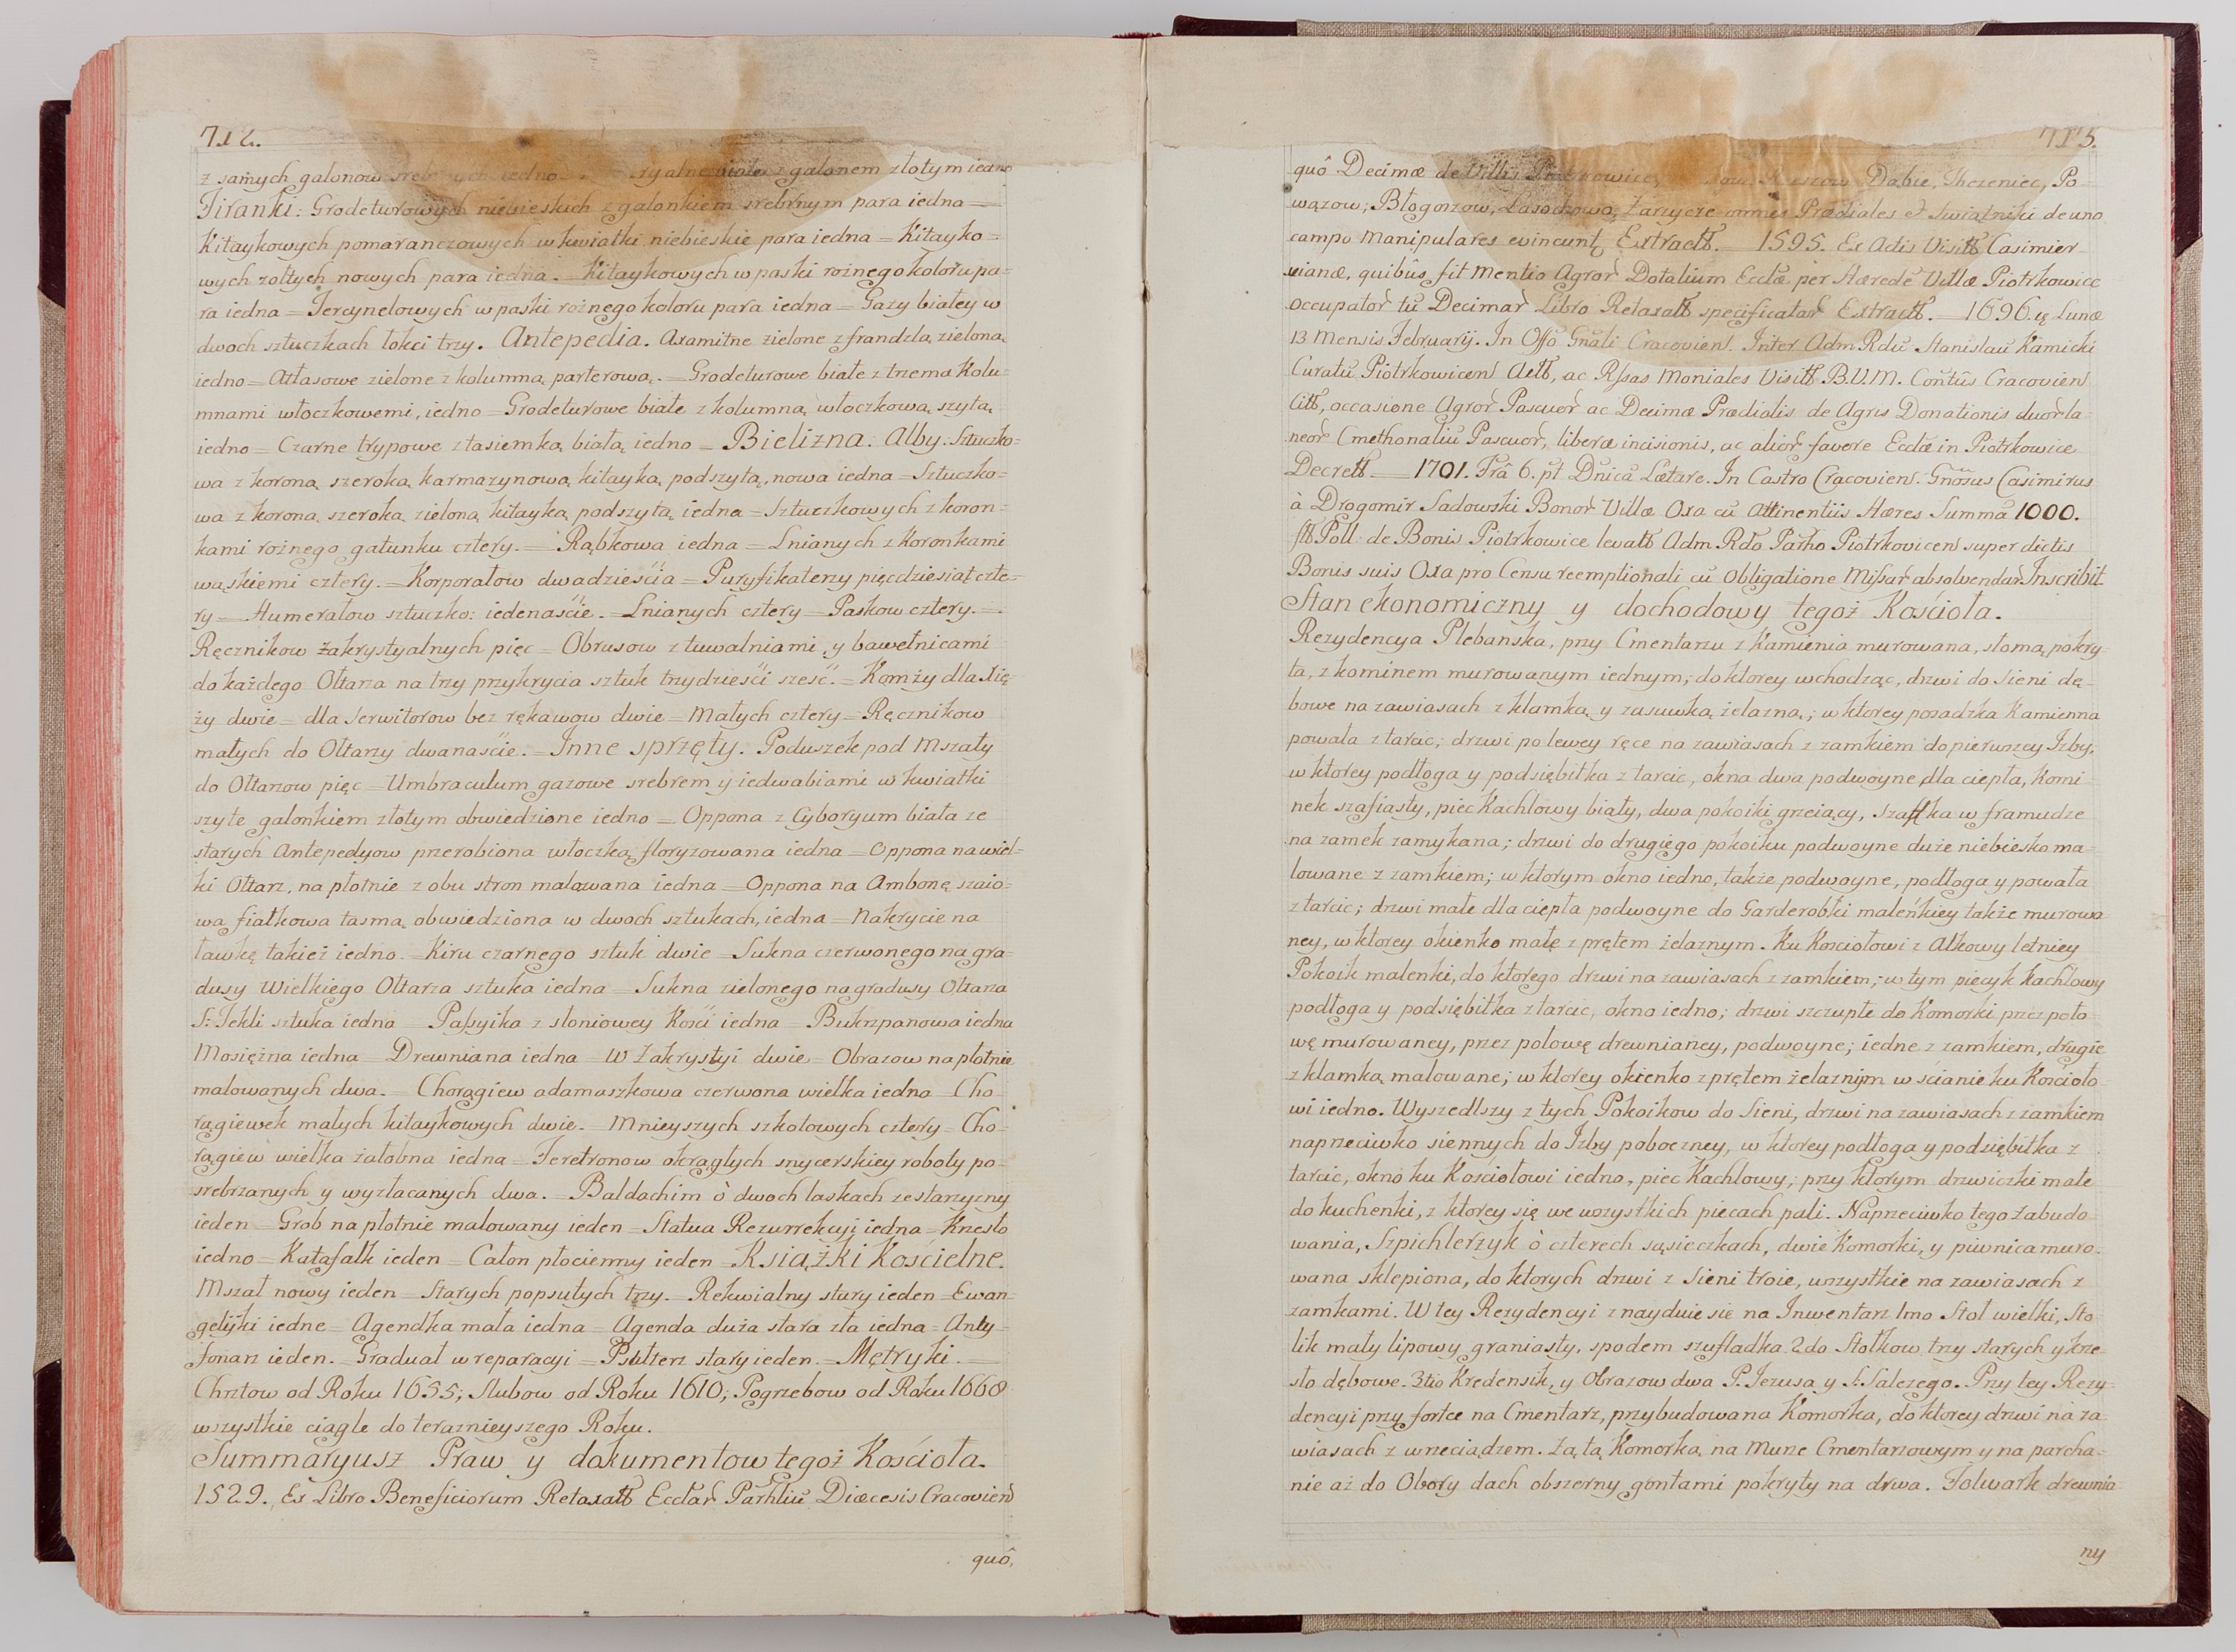 712.
z samych galonow srebrnych iedno galonem złotym iedno
Firanki: Grodeturowych niebieskich z galonkiem srebrnym para iedna =
Kitaykowych pomaranczowych w kwiatki niebieskie para iedna = Kitayko=
wych zołtych nowych para iedna. = Kitaykowych w paski rożnego koloru pa=
ra iedna = Tercynelowych w paski rożnego koloru para iedna = Gazy białey w
dwoch sztuczkach łokci trzy. Antepedia. Axamitne zielone z frandzlą zieloną
iedno = Atłasowe zielone z kolumną parterową. = Grodeturowe białe z trzema Kolu=
mnami włoczkowemi, iedno = Grodeturowe białe z kolumną włoczkową szytą
iedno = Czarne trypowe z tasiemką białą iedno = Bielizna. Alby: Sztuczko=
wa z koroną szeroką karmazynową kitayką podszytą, nowa iedna = Sztuczko=
wa z koroną szeroką zieloną kitayką podszytą iedna = Sztuczkowych z koron=
kami rożnego gatunku cztery. = Rąbkowa iedna = Lnianych z Koronkami
wąskiemi cztery. = Korporałow dwadzieścia = Puryfikaterzy pięcdziesiąt czte=
ry = Humerałow sztuczko: iedenaście. = Lnianych cztery = Paskow cztery. =
Ręcznikow Zakrystyalnych pięc = Obrusow z tuwalniami, y bawełnicami
do każdego Ołtarza na trzy przykrycia sztuk trzydzieści sześć. = Komży dla Xię=
ży dwie = dla Serwitorow bez rękawow dwie = Małych cztery = Ręcznikow
małych do Ołtarzy dwanaście. = Inne sprzęty. Poduszek pod Mszały
do Ołtarzow pięc = Umbraculum gazowe srebrem y iedwabiami w kwiatki
szyte galonkiem złotym obwiedzione iedno = Oppona z Cyboryum biała ze
starych Antepedyow przerobiona włoczką floryzowana iedna = Oppona na wiel=
ki Ołtarz, na płotnie z obu stron malowana iedna = Oppona na Ambonę szaio=
wa fiałkowa tasmą obwiedziona w dwoch sztukach, iedna = Nakrycie na
ławkę takież iedno. = Kiru czarnego sztuk dwie = Sukna czerwonego na gra=
dusy Wielkiego Ołtarza sztuka iedna = Sukna zielonego na gradusy Ołtarza
S: Tekli sztuka iedna = Passyika z słoniowey Kości iedna = Bukszpanowa iedna
Mosiężna iedna = Drewniana iedna = W Zakrystyi dwie = Obrazow na płotnie
malowanych dwa. = Chorągiew adamaszkowa czerwona wielka iedna = Cho=
rągiewek małych kitaykowych dwie. = Mnieyszych szkołowych cztery = Cho=
rągiew wielka żałobna iedna = Feretronow okrągłych snycerskiey roboty po=
srebrzanych y wyzłacanych dwa. = Baldachim ò dwoch laskach ze starzyzny
ieden = Grob na płotnie malowany ieden = Statua Rezurrekcyi iedna = Krzesło
iedno = Katafalk ieden = Całon płocienny ieden = Książki Kościelne.
Mszał nowy ieden = Starych popsutych trzy. = Rekwialny stary ieden = Ewan=
geliyki iedne = Agendka mała iedna = Agenda duża stara zła iedna = Anty=
fonarz ieden. = Graduał w reparacyi = Psałterz stary ieden. = Metryki. =
Chrztow od Roku 1655; Slubow od Roku 1610; Pogrzebow od Roku 1668
wszystkie ciągle do teraznieyszego Roku.
Summaryusz Praw y dokumentow tegoż Kościoła.
1529. Ex Libro Beneficiorum Retaxatt Ecclar Parhliu Diæcesis Cracovien
quô.
713.
quô Decimæ de Villis Piotrkowice, Dabie, Po=
wązow, Błogoszow, Lasochowa, omnes Prædiales et Swiątniki de uno
campo Manipulares evincunt Extractt. = 1595. Ex Actis Visitt Casimier=
zianæ, quibûs fit mentio Agror Dotalium Ecclæ per Hærede Villæ Piotrkowice
occupator tu Decimar Libro Retaxatt specificatar Extractt. = 1696. Lunæ
13 Mensis February. In Offo Gnali Cracovien. Inter Adm Rdu Stanislau Kamicki
Curatu Piotrkowicen Actt, ac Rssas Moniales Visitt B.V.M. Contûs Cracovien
Citt, occasione Agror Pascuor ac Decimæ Prædialis de Agris Donationis duor la=
neor Cmethonaliu Pascuor, liberæ incisionis, ac alior favore Ecclæ in Piotrkowice
Decrett. = 1701. Fra 6. pt Dnica Lætare. In Castro Cracovien. Gnosus Casimirus
à Drogomir Sadowski Bonor Villæ Oxa cu Attinentiis Hæres Summa 1000.
flt Poll: de Bonis Piotrkowice levatt Adm Rdo Parho Piotrkovicen super dictis
Bonis suis Oxa pro Censu reemptionali cu Obligatione Missar absolvendar Inscribit.
Stan ekonomiczny y dochodowy tegoż Kościoła.
Rezydencya Plebanska, przy Cmentarzu z Kamienia murowana, słomą pokry=
ta, z kominem murowanym iednym; do ktorey wchodząc, drzwi do Sieni dę=
bowe na zawiasach z klamką y zasuwką żelazną; w ktorey posadzka Kamienna
powała z tarcic; drzwi po lewey ręce na zawiasach z zamkiem do pierwszey Izby,
w ktorey podłoga y podsiębitka z tarcic, okna dwa podwoyne dla ciepła, Komi=
nek szafiasty, piec Kachlowy biały, dwa pokoiki grzeiący, Szaffka w framudze
na zamek zamykana; drzwi do drugiego pokoiku podwoyne duże niebiesko ma=
lowane z zamkiem; w ktorym okno iedno, także podwoyne, podłoga y powała
z tarcic; drzwi małe dla ciepła podwoyne do Garderobki maleńkiey także murowa=
ney, w ktorey okienko małe z prętem żelaznym. Ku Kosciołowi z Alkowy letniey
Pokoik malenki, do ktorego drzwi na zawiasach z zamkiem; w tym piecyk kachlowy
podłoga y podsiębitka z tarcic, okno iedno; drzwi szczupłe do Komorki przez poło=
wę murowaney, przez połowę drewnianey, podwoyne; iedne z zamkiem, drugie
z klamką malowane; w ktorey okienko z prętem żelaznym w ścianie ku Kościoło=
wi iedno. Wyszedłszy z tych Pokoikow do Sieni, drzwi na zawiasach z zamkiem
naprzeciwko siennych do Izby poboczney, w ktorey podłoga y podsiębitka z
tarcic, okno ku Kościołowi iedno, piec Kachlowy; przy ktorym drzwiczki małe
do kuchenki, z ktorey się we wszystkich piecach pali. Naprzeciwko tego Zabudo=
wania, Szpichlerzyk ò czterech sąsieczkach, dwie Komorki, y piwnica muro=
wana sklepiona, do ktorych drzwi z Sieni troie, wszystkie na zawiasach z
zamkami. W tey Rezydencyi znayduie się na Inwentarz 1mo Stoł wielki, Sto=
lik mały lipowy graniasty, spodem szufladka 2do Stołkow trzy starych y krze=
sło dębowe. 3tio Kredensik, y Obrazow dwa P. Jezusa y S. Salezego. Przy tey Rezy=
dencyi przy fortce na Cmentarz, przybudowana Komorka, do ktorey drzwi na za=
wiasach z wrzeciądzem. Zą tą Komorką na Murze Cmentarzowym y na parcha=
nie aż do Obory dach obszerny gontami pokryty na drwa. Folwark drewnia=
ny